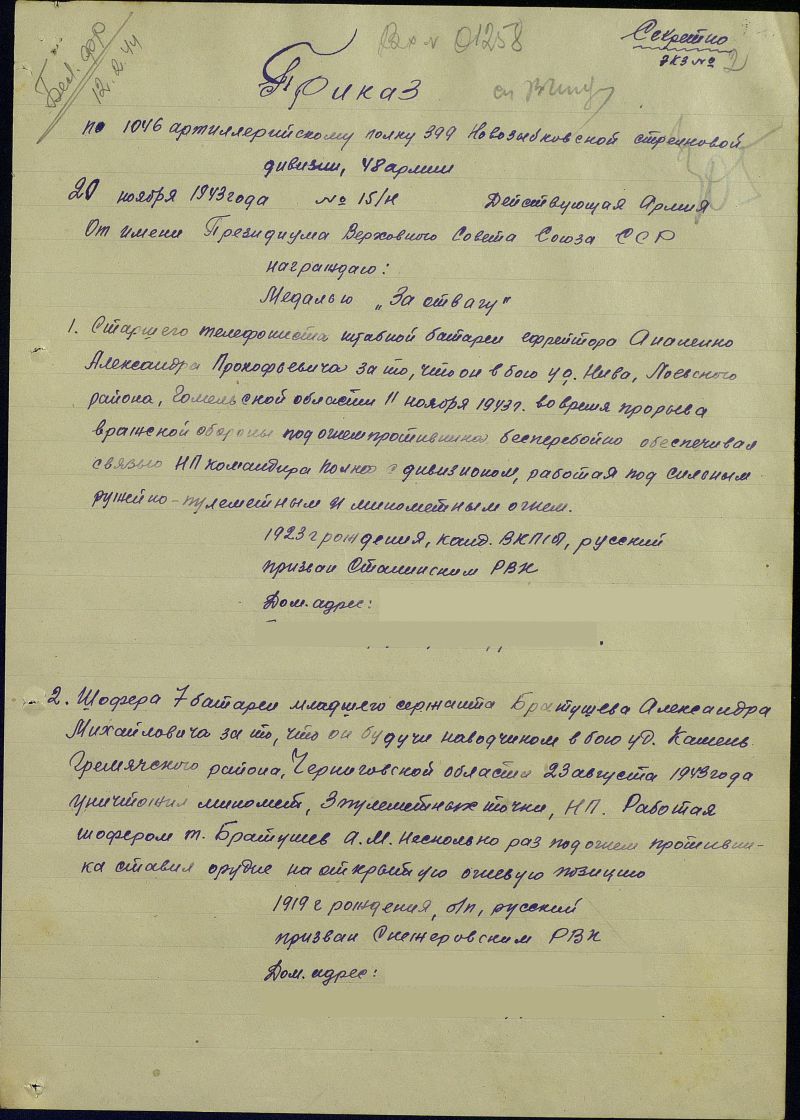 12.2.44
Вх № 01258
Секретно
экз № 2
Приказ
по 1046 артиллерийскому полку 399 Новозыбковской стрелковой
дивизии, 48 армии
20 ноября 1943 года № 15/н Действующая Армия
От имени Президиума Верховного Совета Союза ССР
награждаю:
Медалью „За отвагу"
1. Старшего телефониста штабной батареи ефрейтора Апаненко
Александра Прокофьевича за то, что он в бою у д. Нива, Лоевского
района, Гомельской области 11 ноября 1943 г. во время прорыва
вражской обороны под огнем противника бесперебойно обеспечивал
связью НП командира полка с дивизионом, работая под сильным
ружейно-пулеметным и минометным огнем.
1923 г рождения, канд. ВКП(б), русский
призван Сталинским РВК
Дом. адрес:
2. Шофера 7 батареи младшего сержанта Братушева Александра
Михайловича за то, что он будучи наводчиком в бою у д. Камень
Гремячского района, Черниговской области 23 августа 1943 года
уничтожил миномет, 3 пулеметных точки, НП. Работая
шофером т. Братушев А.М. несколько раз под огнем противни-
ка ставил орудие на открытую огневую позицию
1919 г рождения, б/п, русский
призван РВК
Дом. адрес: